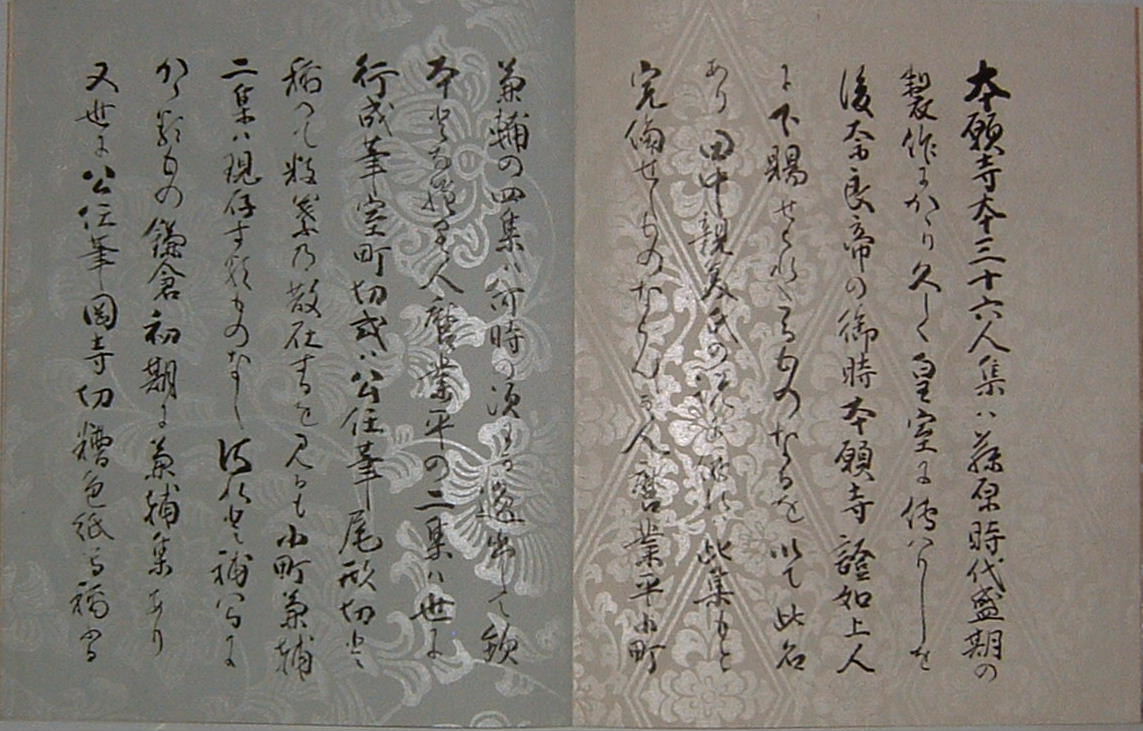 本願寺本三十六人集ハ藤原時代盛期の
製作にかゝり久しく皇室に伝ハりしを
後奈良帝の御時本願寺證如上人
に下賜せられたるものなるを以て此名
あり田中親美氏の説に依れハ此集もと
完備せしものならんが人麿業平小町
兼輔の四集ハ何時の頃にか逸出して欠
本となり人麿業平の二集ハ世に
行成筆室町切或ハ公任筆尾形切と
稱へて数葉乃散在するを見るも小町兼輔
二集ハ現存する類ものなし
かゝるもの鎌倉初期に兼輔集あり
又世に公任筆岡寺切糟色紙等稱する